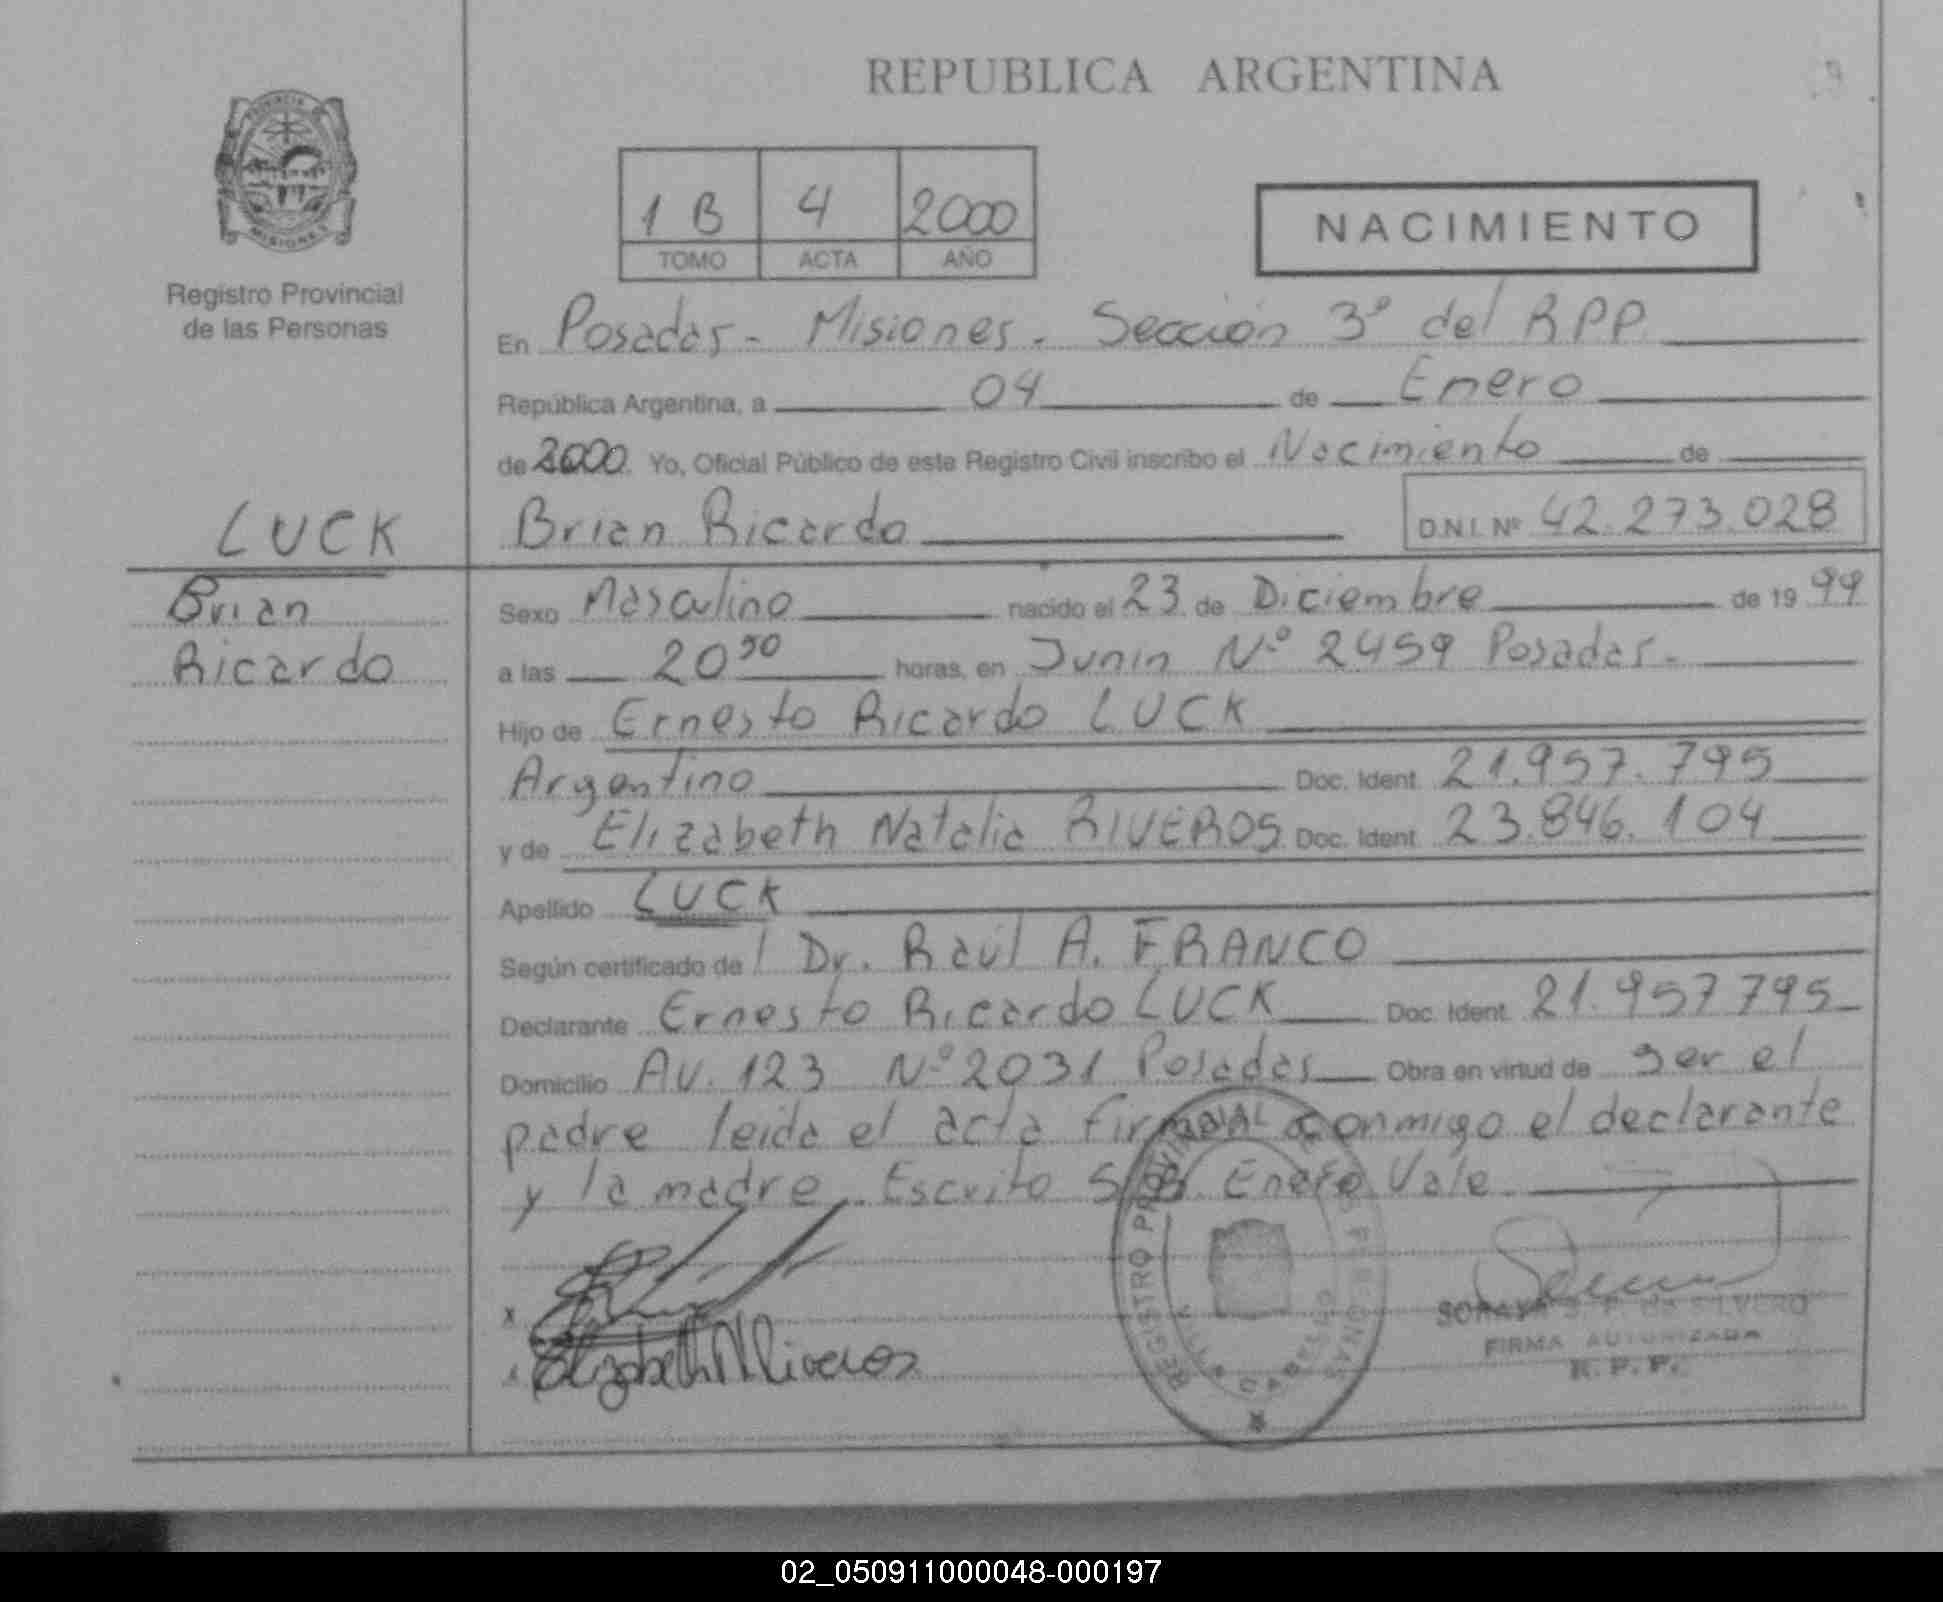 REPUBLICA ARGENTINA
PROVINCIA
MISIONES
Registro Provincial
de las Personas
1 B 4 2000
TOMO ACTA AÑO
NACIMIENTO
En Posadas - Misiones. Sección 3º del RPP
República Argentina, a 04 de Enero
de 2000. Yo, Oficial Público de este Registro Civil inscribo el Nacimiento de
LUCK
Brian Ricardo D.N.I. Nº 42.273.028
Brian
Ricardo
Sexo Masculino nacido el 23 de Diciembre de 19 99
a las 20 horas, en Junin Nº 2459 Posadas.-
Hijo de Ernesto Ricardo LUCK
Argentino Doc. Ident. 21.957.795
y de Elizabeth Natalia RIVEROS Doc. Ident. 23.846.104
Apellido LUCK
Según certificado de Dr. Raúl A. FRANCO
Declarante Ernesto Ricardo LUCK Doc. Ident. 21.957795
Domicilio Av. 123 Nº 2031 Posadas Obra en virtud de ser el
padre leida el acta firman conmigo el declarante
y la madre. Escrito S/B Enero Vale
x
Elizabeth N Riveros
REGISTRO PROVINCIAL DE LAS PERSONAS
VILLA CABELLO
SORAYA S. F. de SILVERO
FIRMA AUTORIZADA
R. P. P.
02_050911000048-000197